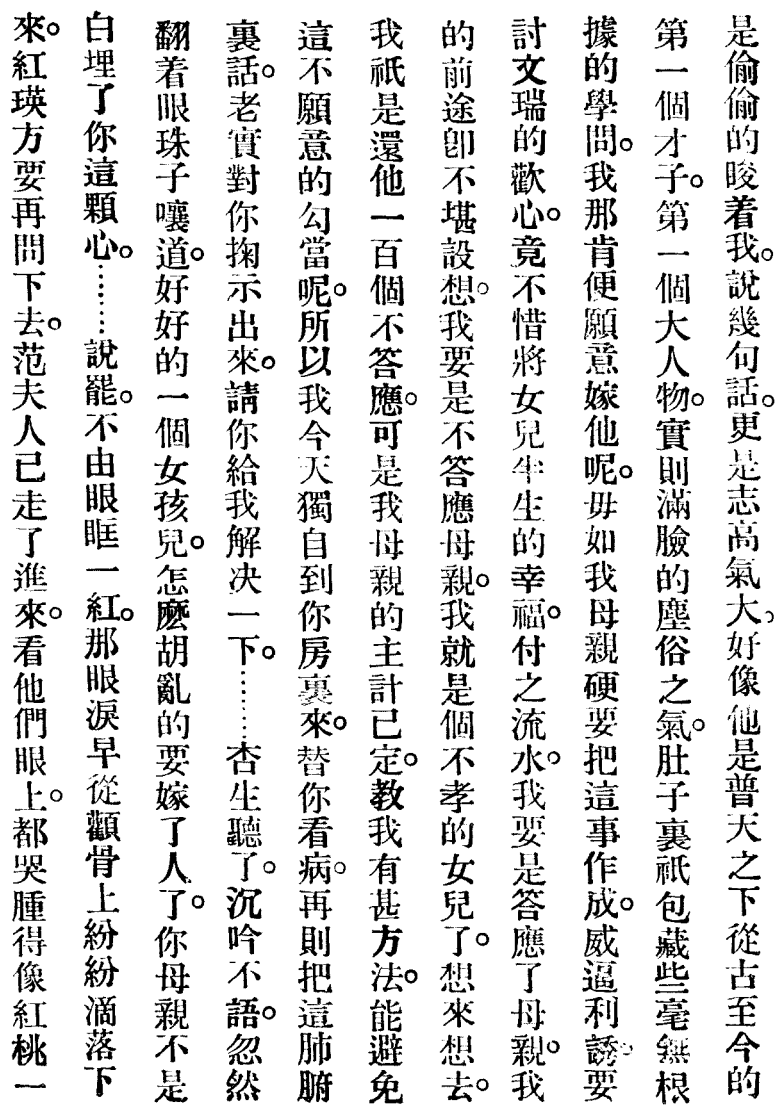 是偷偷的睃着我。說幾句話。更是志高氣大。好像他是普天之下從古至今的
第一個才子。第一個大人物。實則滿臉的塵俗之氣。肚子裏祇包藏些毫無根
據的學問。我那肯便願意嫁他呢。毋如我母親硬要把這事作成。威逼利誘。要
討文瑞的歡心。竟不惜將女兒半生的幸福。付之流水。我要是答應了母親。我
的前途卽不堪設想。我要是不答應母親。我就是個不孝的女兒了。想來想去。
我祇是還他一百個不答應。可是我母親的主計已定。教我有甚方法。能避免
這不願意的勾當呢。所以我今天獨自到你房裏來。替你看病。再則把這肺腑
裏話。老實對你掬示出來。請你給我解決一下。………杏生聽了。沉吟不語。忽然
翻着眼珠子嚷道。好好的一個女孩兒。怎麽胡亂的要嫁了人了。你母親不是
白埋了你這顆心。……說罷。不由眼眶一紅。那眼淚早從顴骨上紛紛滴落下
來。紅瑛方要再問下去。范夫人已走了進來。看他們眼上。都哭腫得像紅桃一